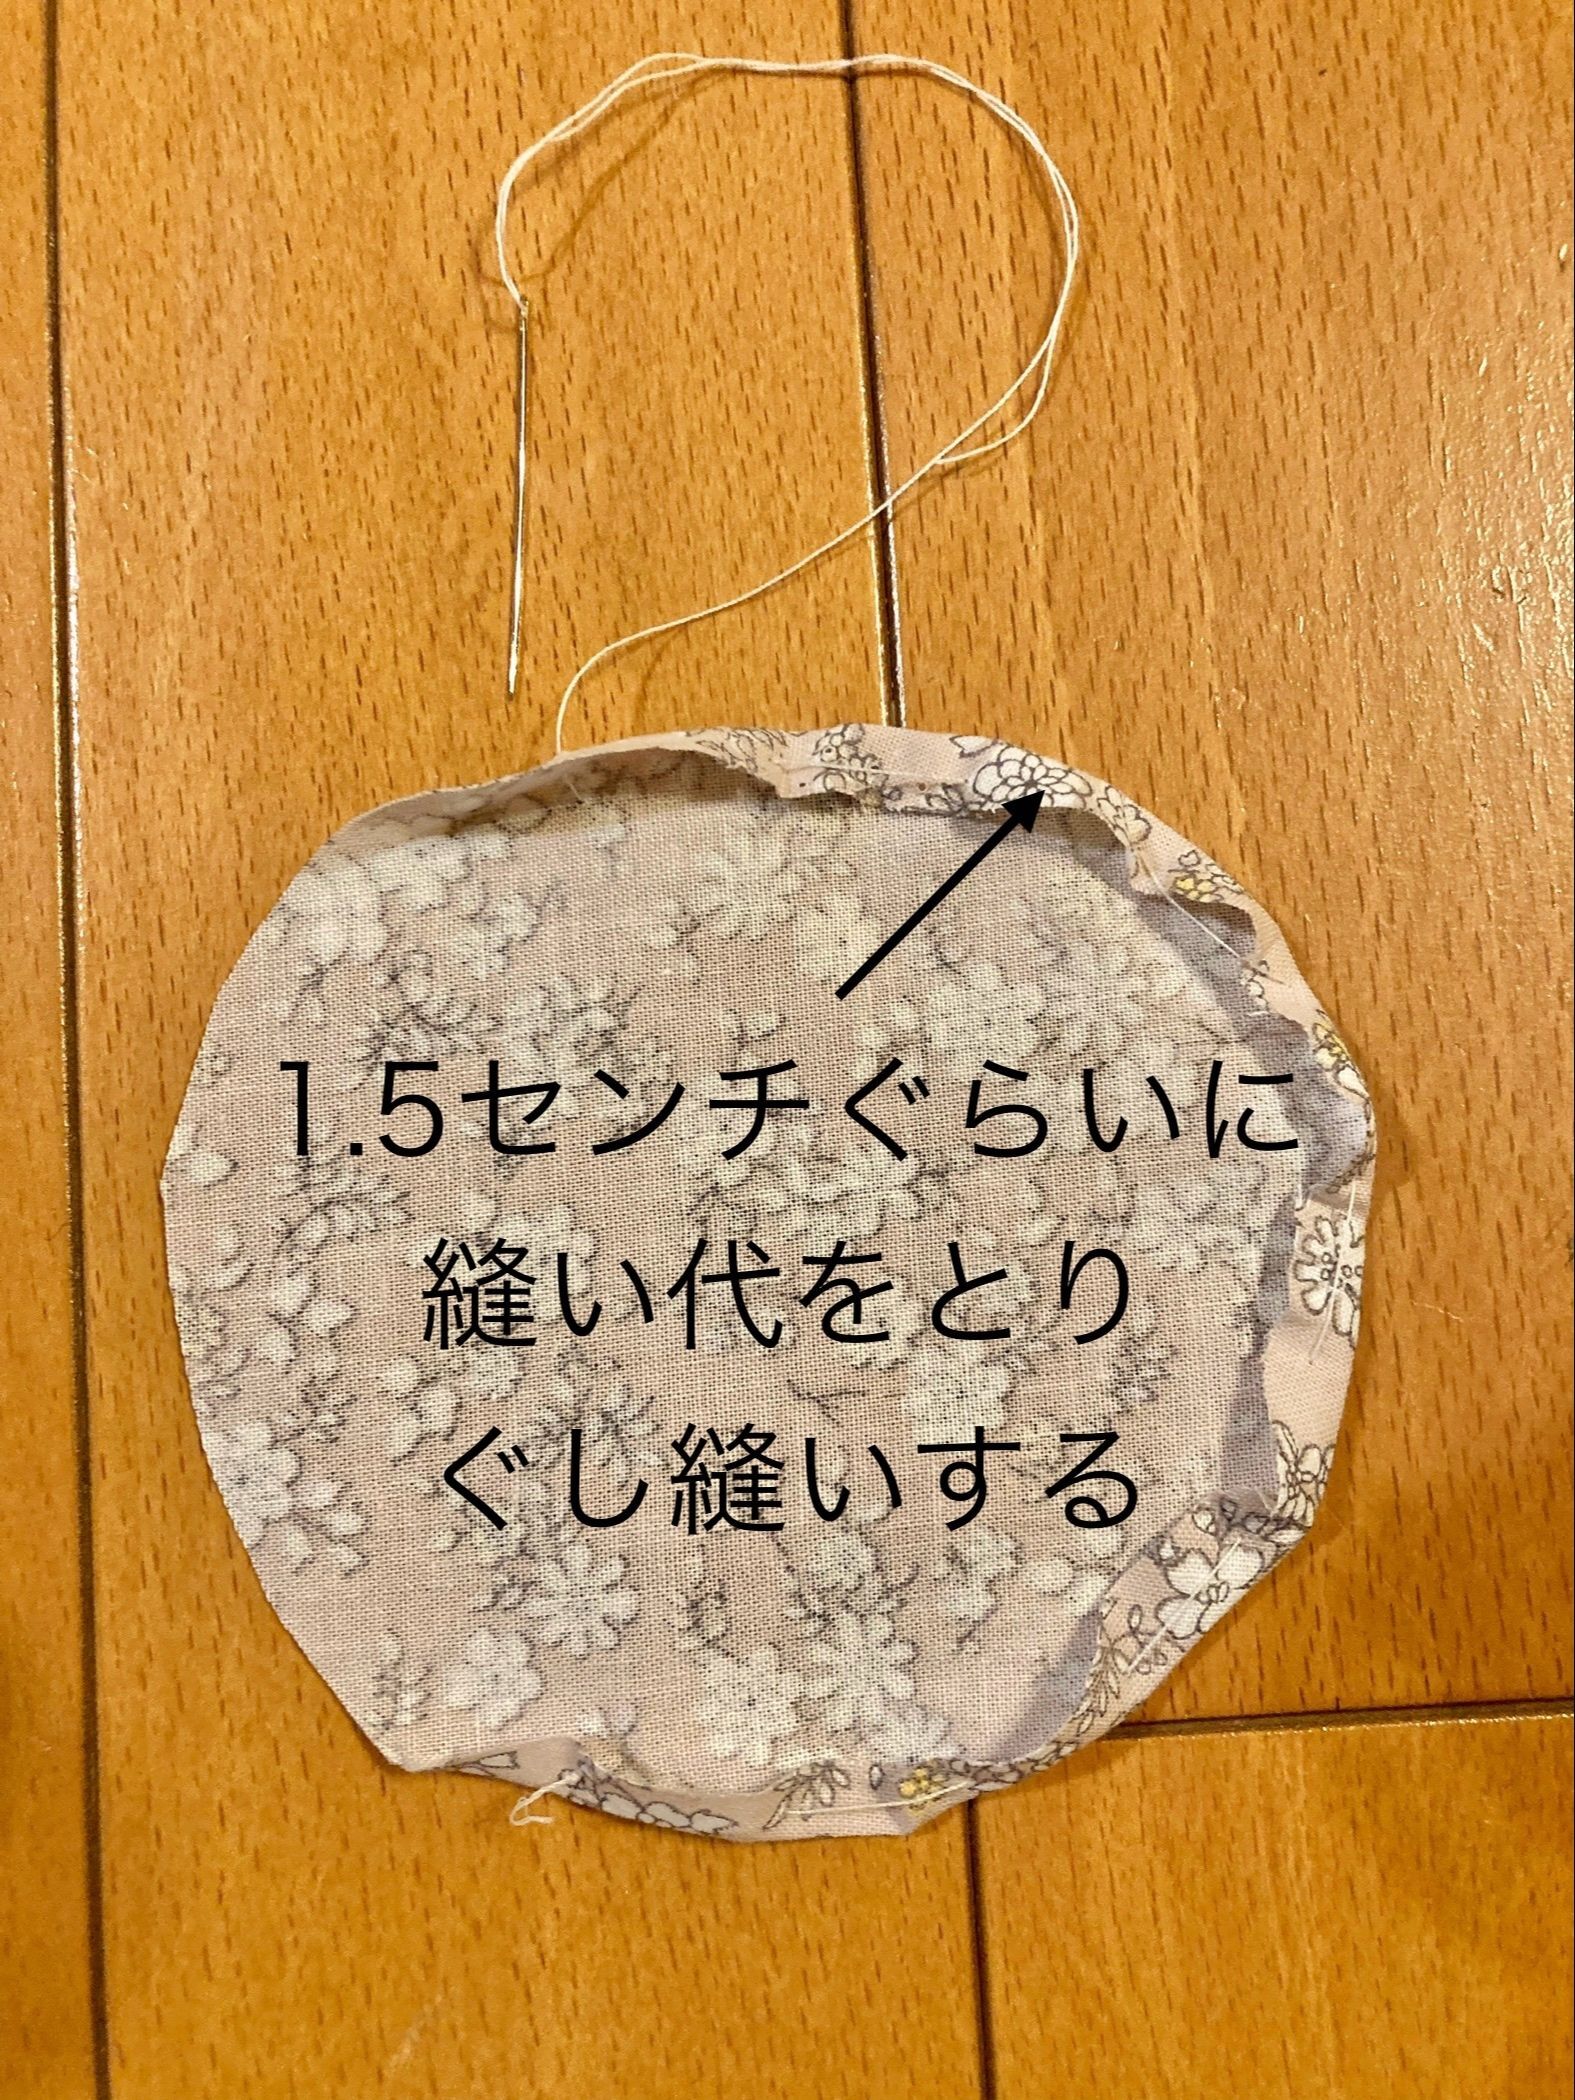 1.5センチぐらいに
縫い代をとり
ぐし縫いする